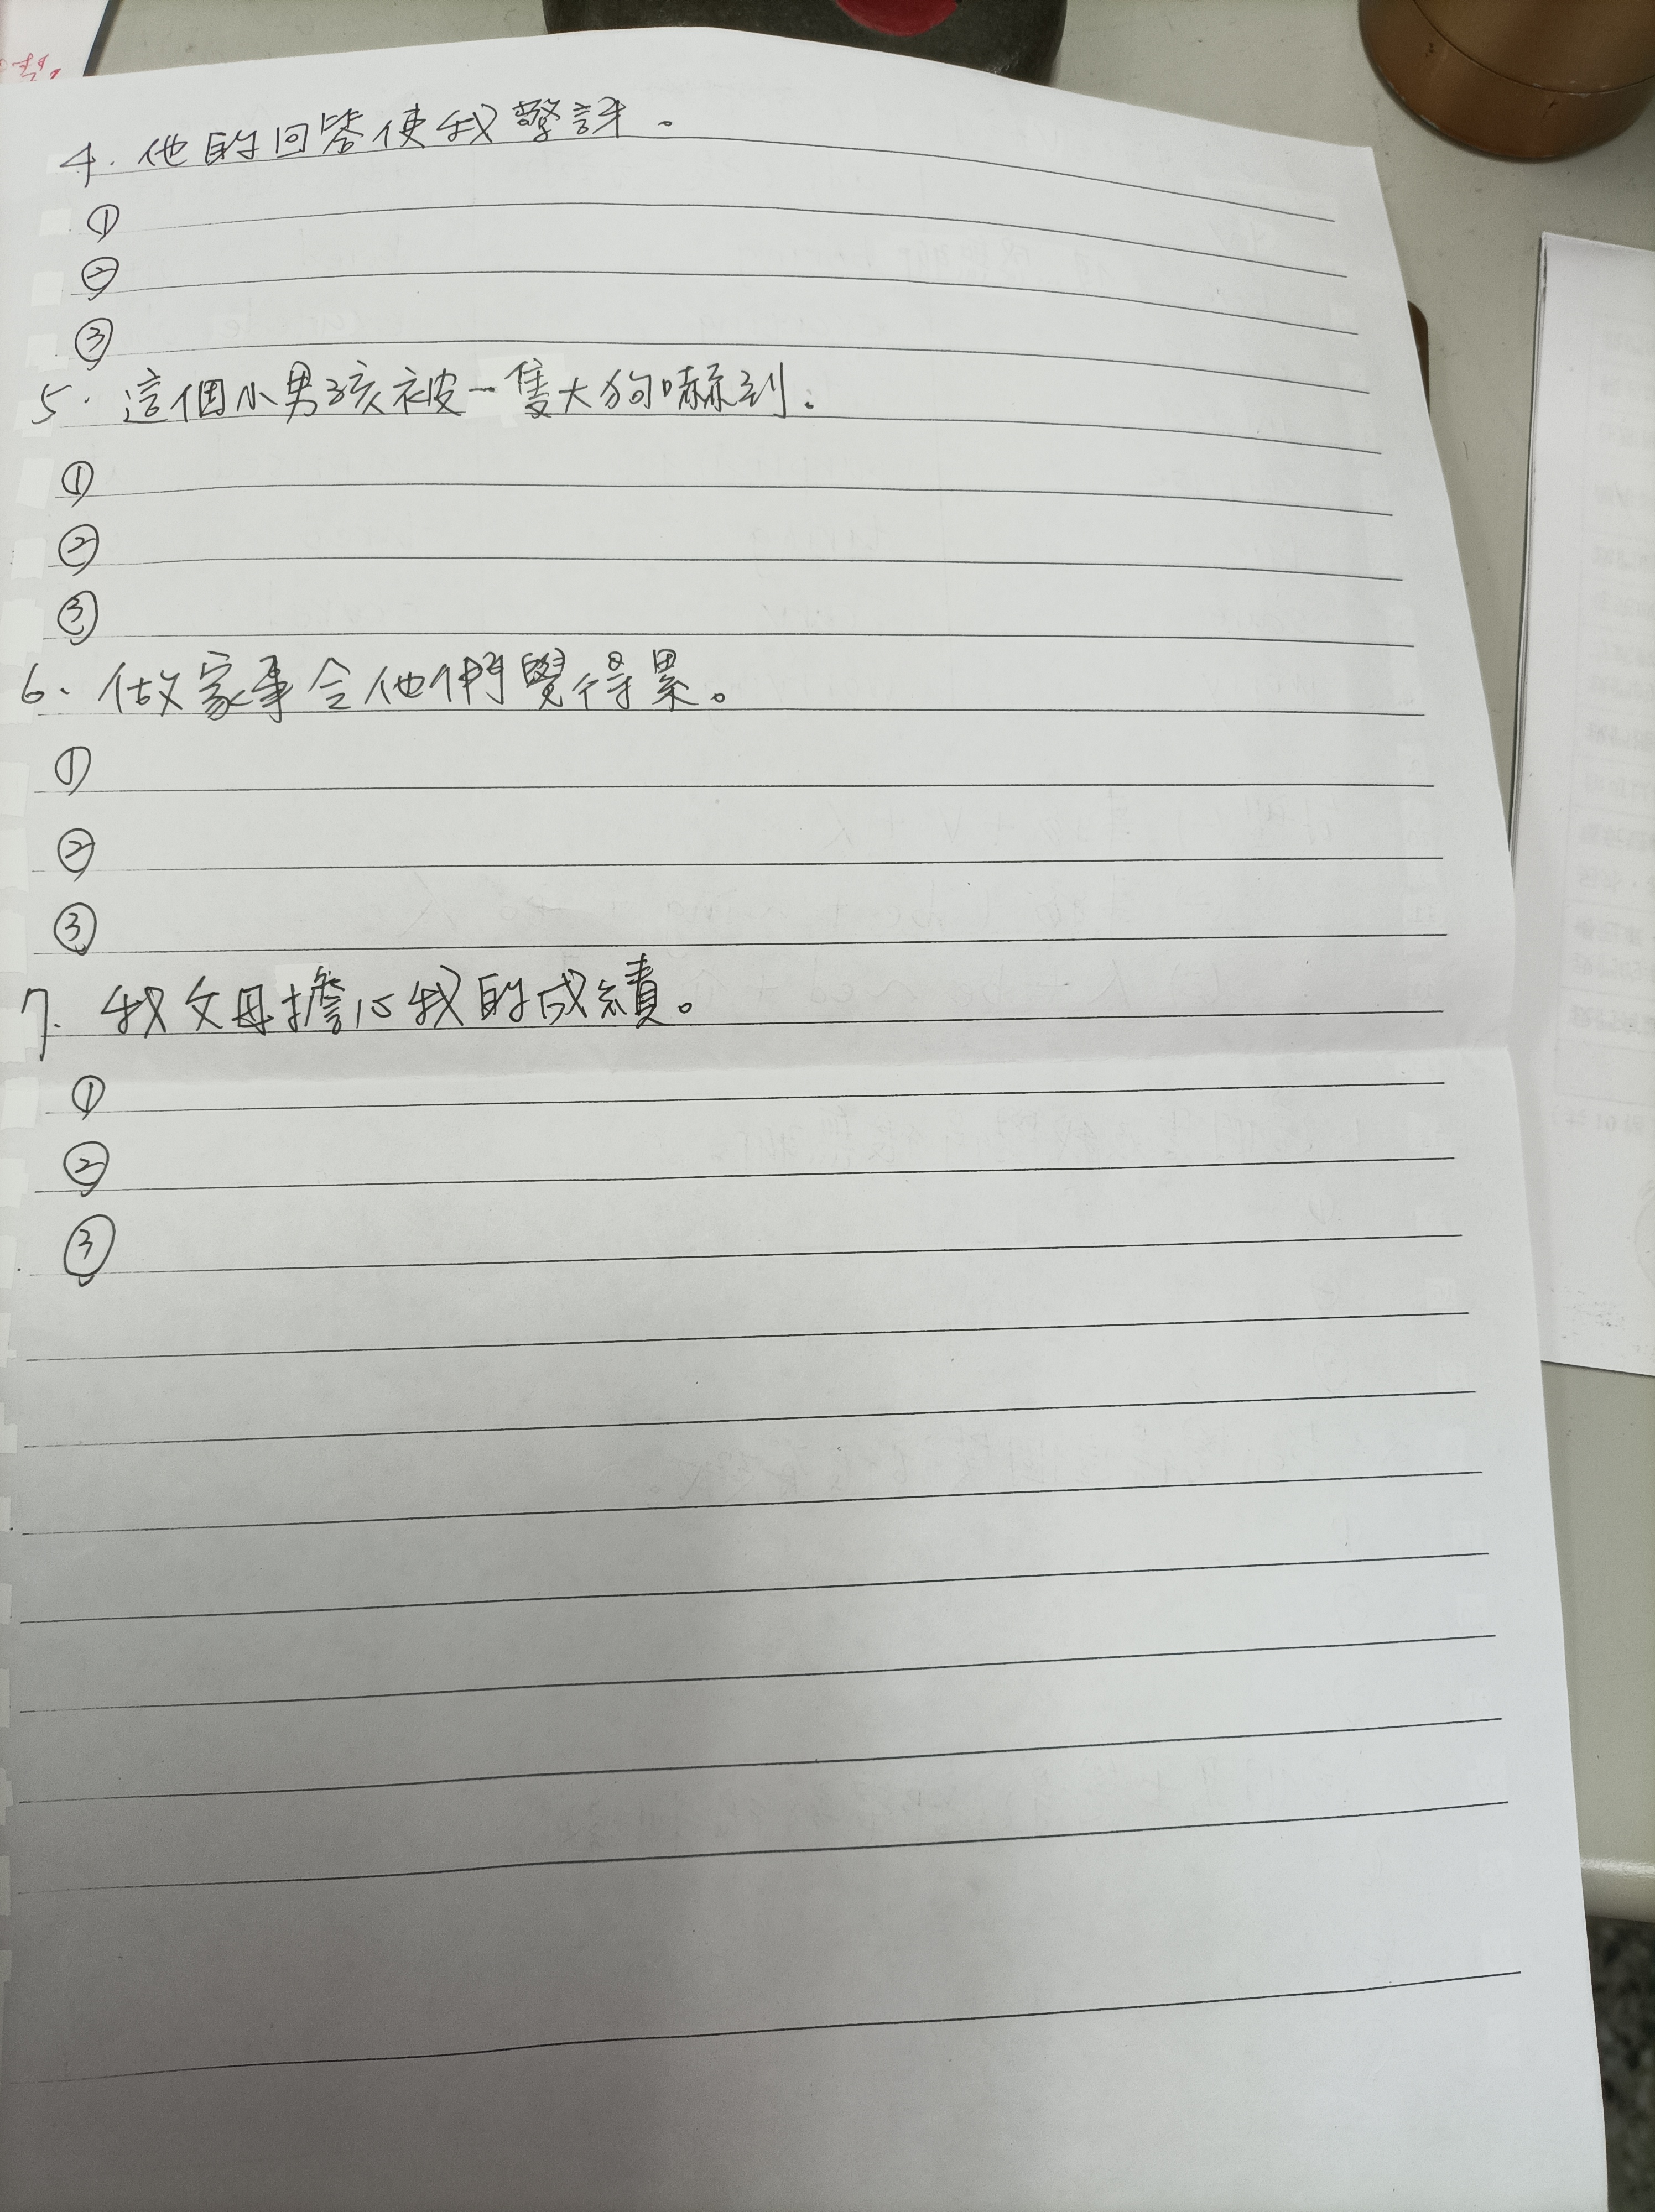 4. 他的回答使我驚訝。
①
②
③
5. 這個小男孩被一隻大狗嚇到.
①
②
③
6. 做家事令他們覺得累。
①
②
③
7. 我父母擔心我的成績。
①
②
③